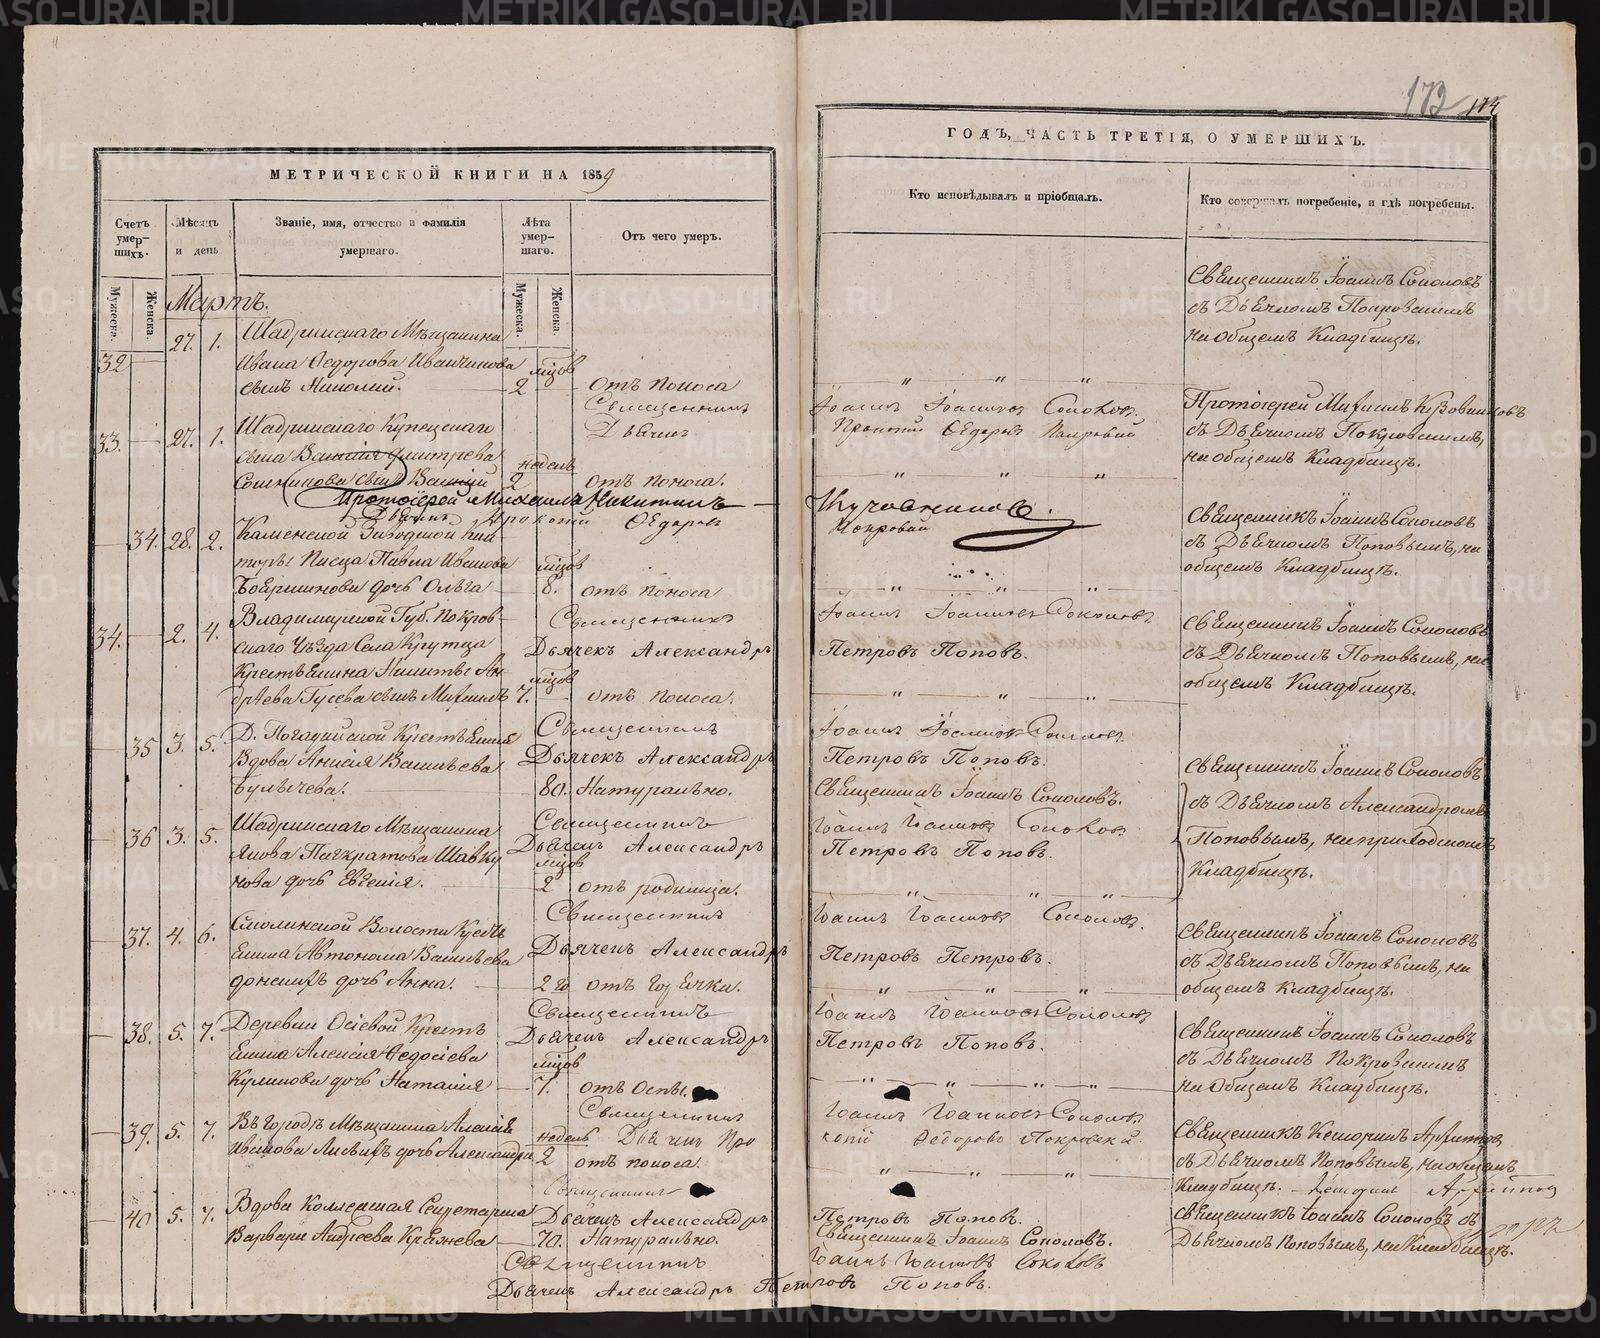 173 174
МЕТРИЧЕСКОЙ КНИГИ НА 1859
ГОДЪ, ЧАСТЬ ТРЕТІЯ, О УМЕРШИХЪ.
Счетъ умер-шихъ.
Мѣсяцъ и день
Званіе, имя, отчество и фамилія умершаго.
Лѣта умер-шаго.
Отъ чего умеръ.
Кто исповѣдывалъ и пріобщалъ.
Кто совершалъ погребеніе, и гдѣ погребены.
Мужеска. Женска.
Мужеска. Женска.
Мартъ.
32 27. 1. Шадринскаго Мѣщанина
Ивана Ѳедорова Иванчикова мѣсов
сынъ Николай. 2 отъ поноса
Священникъ Іоаннъ Іоанновъ Соколов.
Дьячекъ Прокопій Ѳедоровъ Покровскій
Священникъ Іоаннъ Соколовъ
съ Дьячкомъ Покровскимъ
на общемъ Кладбищѣ.
33. 27. 1. Шадринскаго Купецкаго
сына Василія Дмитрева недель
сынъ Василій 2 отъ поноса.
Протоіерей Михаилъ Никитинъ Кучовниковъ.
Дьячекъ Прокопій Ѳедоровъ Покровскій
Протоіерей Михаилъ
съ Дьячкомъ Покровскимъ,
на общемъ Кладбищѣ.
34. 28. 2. Каменской Заводской кон-
торы Писца Павла Иванова мѣсов
дочь Ольга 8. отъ поноса
Священникъ Іоаннъ Іоанновъ Соколовъ
Дьячекъ Александръ Петровъ Попов.
Священникъ Іоаннъ Соколовъ
съ Дьячкомъ Поповымъ, на
общемъ Кладбищѣ.
34. 2. 4. Владимирской Губ. Покров-
скаго Уѣзда Села Крутца
Крестьянина Никиты Ан- мѣсов
дрѣева Гусева сынъ Михаилъ 7. отъ поноса.
Священникъ Іоаннъ Іоанновъ Соколовъ
Дьячекъ Александръ Петровъ Поповъ.
Священникъ Іоаннъ Соколовъ
съ Дьячкомъ Поповымъ, на
общемъ Кладбищѣ.
35 3. 5. Д. Крестьянка
Вдова Анисія Васильева
Булычева. 80. Натурально. Священникъ Іоаннъ Соколовъ.
Священникъ Іоаннъ Іоанновъ Соколов
Дьячекъ Александръ Петровъ Попов.
Священникъ Іоаннъ Соколовъ
съ Дьячкомъ Александромъ
Поповымъ, на приходскомъ
Кладбищѣ.
36 3. 5. Шадринскаго Мѣщанина
Якова Панкратова Шавку мѣсов
нова дочь Евгенія. 2 отъ родимца.
Священникъ Іоаннъ Іоанновъ Соколов.
Дьячекъ Александръ Петровъ Петровъ.
37. 4. 6. Смолинской Волости Кресть
янина Автонома Васильева
дочь Анна. 2 го отъ горячки.
Священникъ Іоаннъ Іоанновъ Соколовъ
Дьячекъ Александръ Петровъ Попов.
Священникъ Іоаннъ Соколовъ
съ Дьячкомъ Поповымъ, на
общемъ Кладбищѣ.
38. 5. 7. Деревни Осѣевой Кресть
янина Алексія Ѳедосіева мѣсов
Куликова дочь Наталія 7. отъ Оспы.
Священникъ Іоаннъ Іоанновъ Соколов
Дьячекъ Прокопій Федоровъ Покровскій.
Священникъ Іоаннъ Соколовъ
съ Дьячкомъ Покровскимъ
на Общемъ Кладбищѣ.
39. 5. 7. Мѣщанина Алексія
Иванова дочь Александра недель 2 отъ поноса.
Священникъ
Дьячекъ Александръ Петровъ Попов.
Священникъ
съ Дьячкомъ Поповымъ, на общемъ
Кладбищѣ.
40 5. 7. Вдова Колежская Секретарша
Варвара Андреева Кряжева 70. Натурально. Священникъ Іоаннъ Соколовъ.
Священникъ Іоаннъ Іоанновъ Соколовъ
Дьячекъ Александръ Петровъ Попов.
Священникъ Іоаннъ Соколовъ съ
Дьячкомъ Поповымъ, на Кладбищѣ.
METRIKI.GASO-URAL.RU